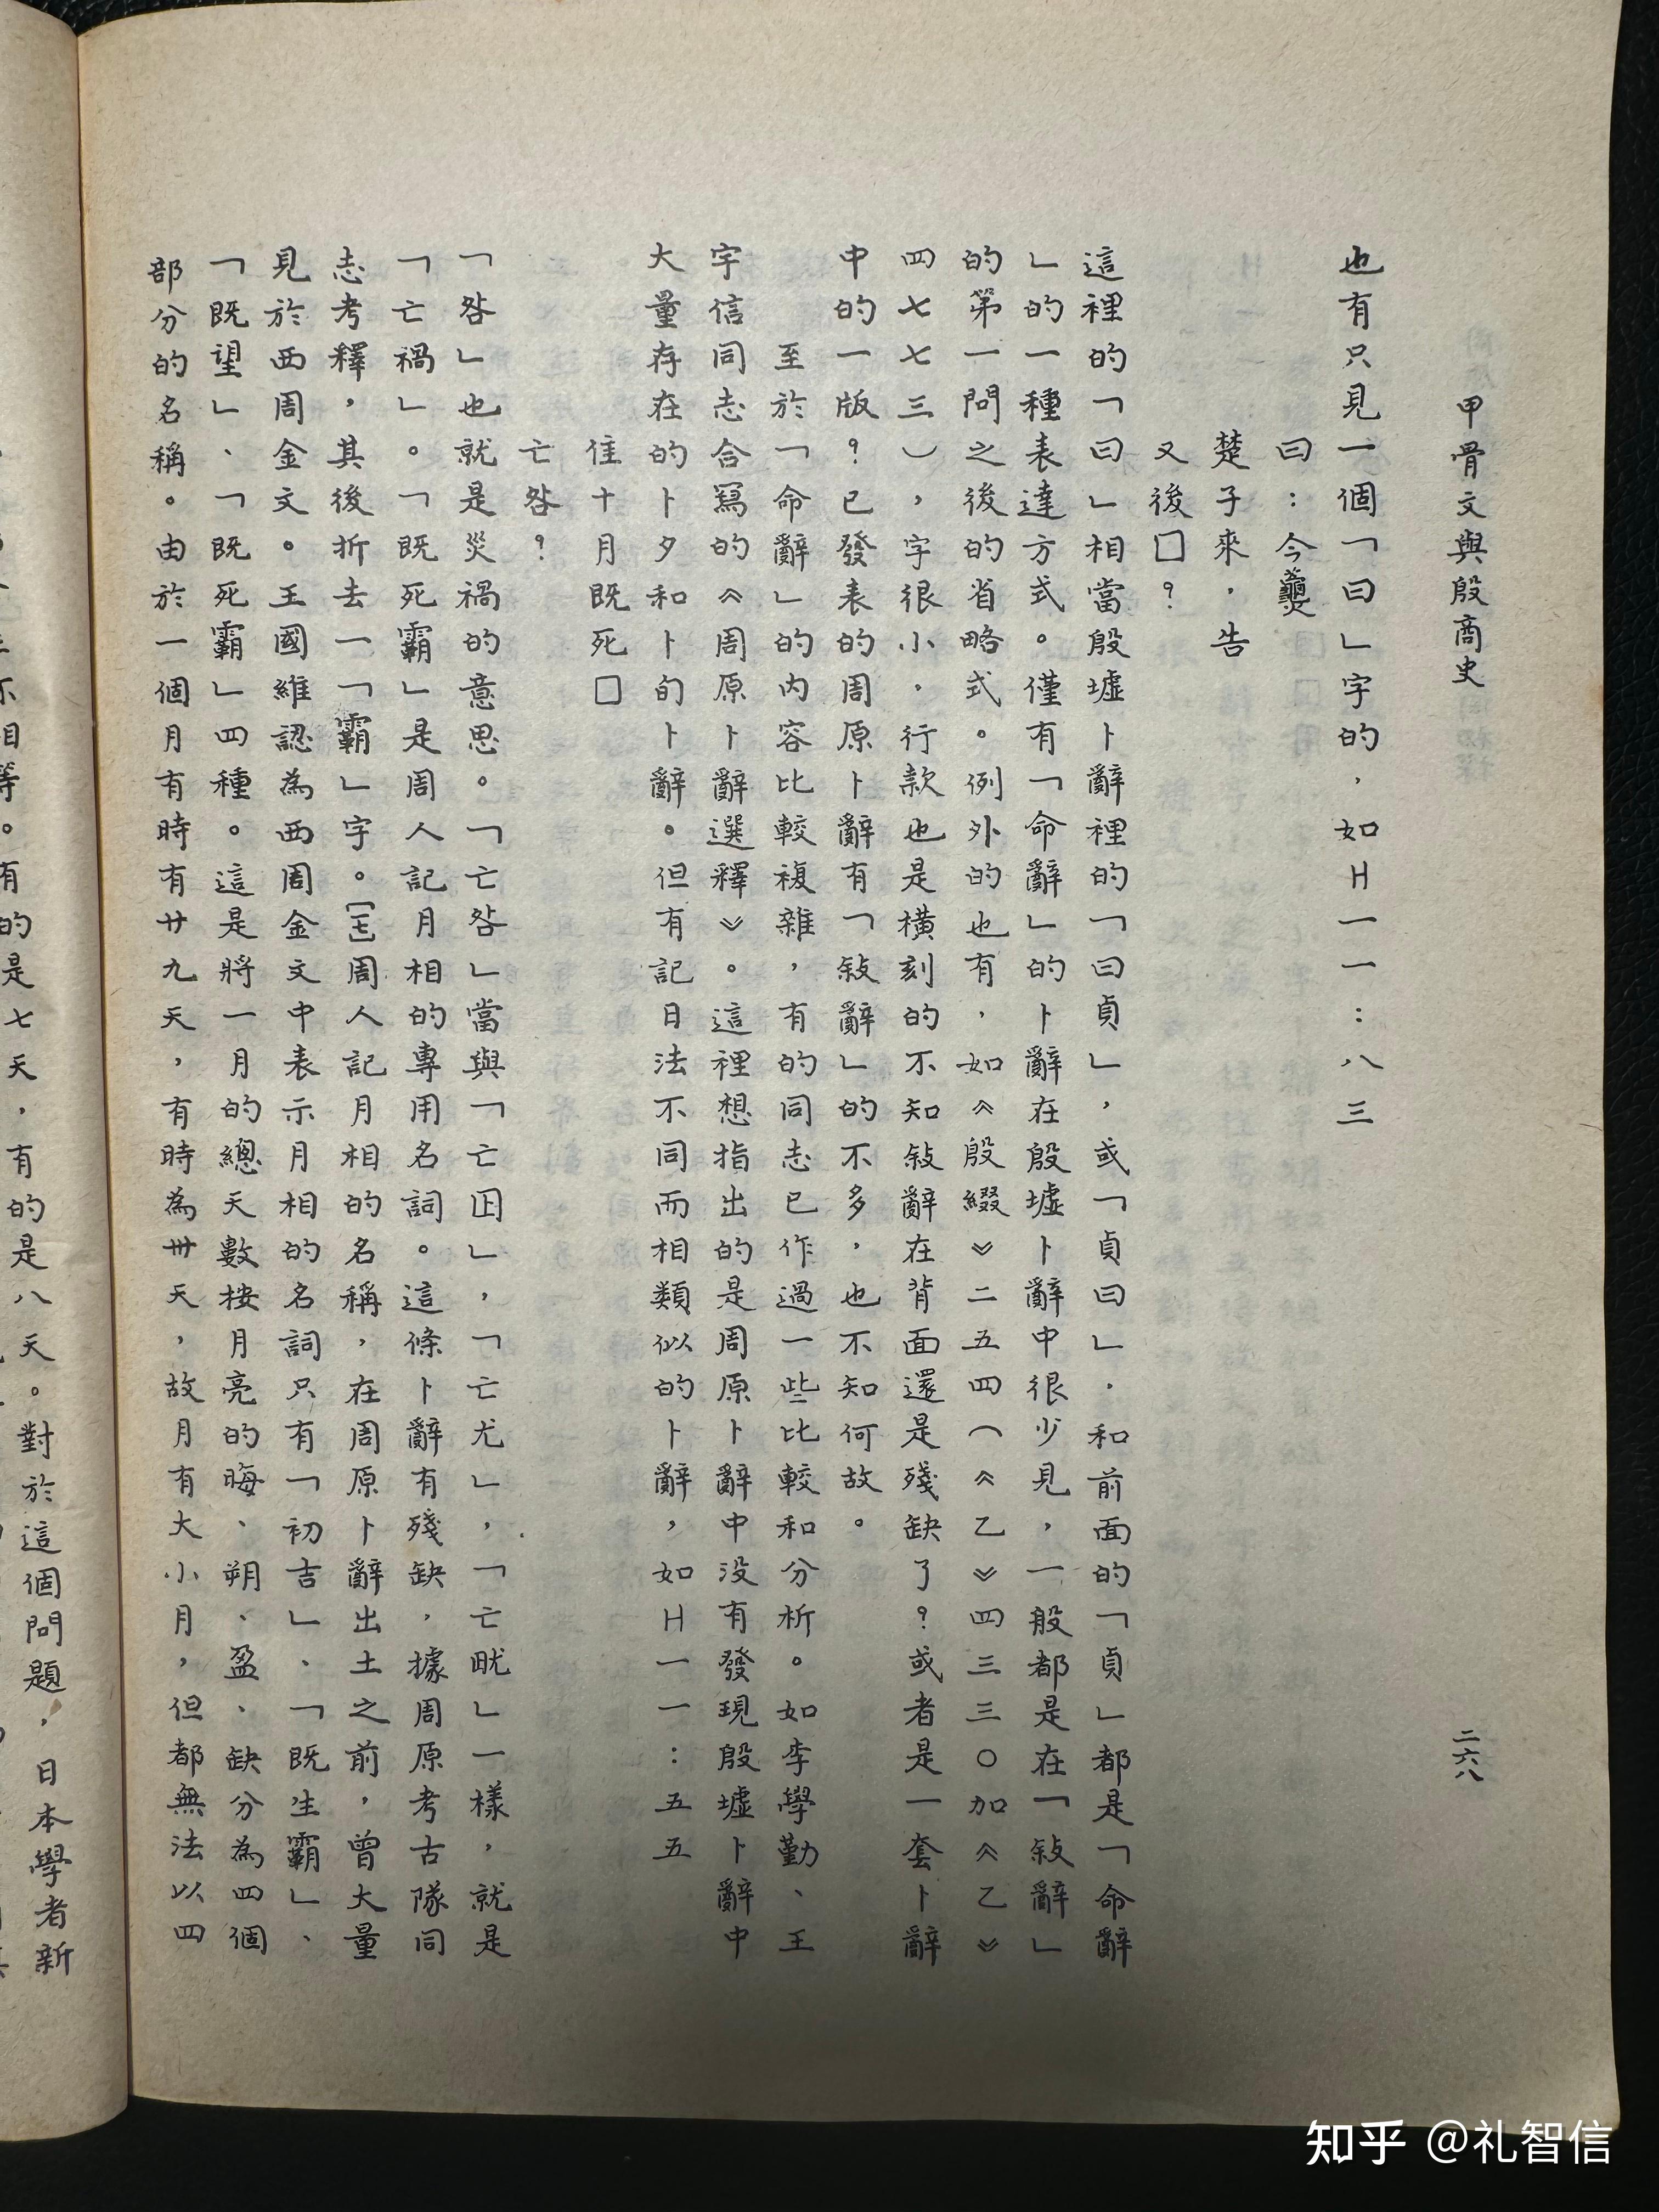 甲骨文與殷商史
二六八
也有只見一個「曰」字的，如H一一：八三
曰：今
楚子來，告
又後□？
這裡的「曰」相當殷墟卜辭裡的「曰貞」，或「貞曰」，和前面的「貞」都是「命辭
」的一種表達方式。僅有「命辭」的卜辭在殷墟卜辭中很少見，一般都是在「敍辭」
的第一問之後的省略式。例外的也有，如《殷綴》二五四（《乙》四三三〇加《乙》
四七七三），字很小，行款也是橫刻的不知敍辭在背面還是殘缺了？或者是一套卜辭
中的一版？已發表的周原卜辭有「敍辭」的不多，也不知何故。
至於「命辭」的内容比較複雜，有的同志已作過一些比較和分析。如李學勤、王
宇信同志合寫的《周原卜辭選釋》。這裡想指出的是周原卜辭中没有發現殷墟卜辭中
大量存在的卜夕和卜旬卜辭。但有記日法不同而相類似的卜辭，如H一一：五五
隹十月既死□
亡咎？
「咎」也就是災禍的意思。「亡咎」當與「亡囙」，「亡尤」，「亡畎」一樣，就是
「亡禍」。「既死霸」是周人記月相的專用名詞。這條卜辭有殘缺，據周原考古隊同
志考釋，其後折去一「霸」字。周人記月相的名稱，在周原卜辭出土之前，曾大量
見於西周金文。王國維認為西周金文中表示月相的名詞只有「初吉」、「既生霸」、
「既望」、「既死霸」四種。這是將一月的總天數按月亮的晦、朔、盈、缺分為四個
部分的名稱。由於一個月有時有廿九天，有時為卅天，故月有大小月，但都無法以四
相等。有的是七天，有的是八天。對於這個問題，日本學者新
知乎 @礼智信